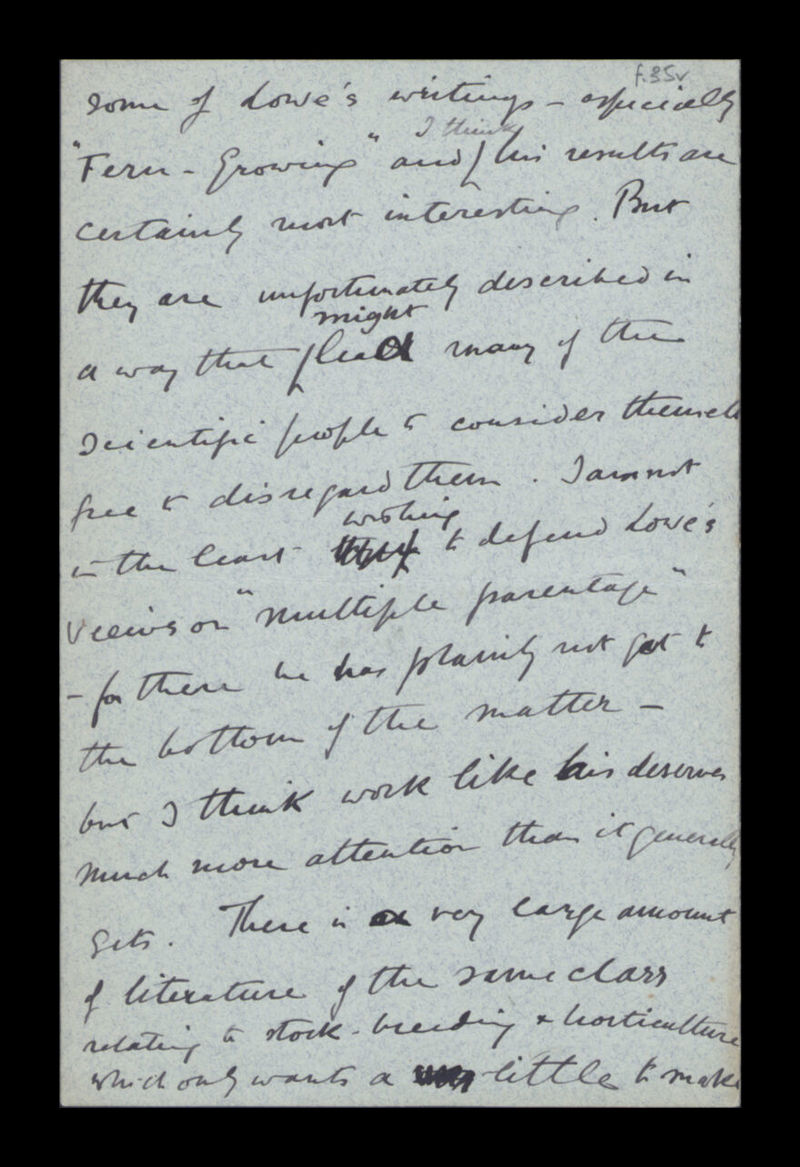 f.35v
some of Lowe's writings - especially
"Fern-Growing" and I think his results are
certainly most interesting. But
they are unfortunately described in
a way that might lead many of the
scientific people to consider themsel
free to disregard them. I am not
in the least wishing to defend Lowe's
views on "multiple parentage"
- for there he has plainly not got to
the bottom of the matter -
but I think work like his deserves
much more attention than it generally
gets. There is a very large amount
of literature of the same class
relating to stock-breeding & horticulture
which only wants a little to make